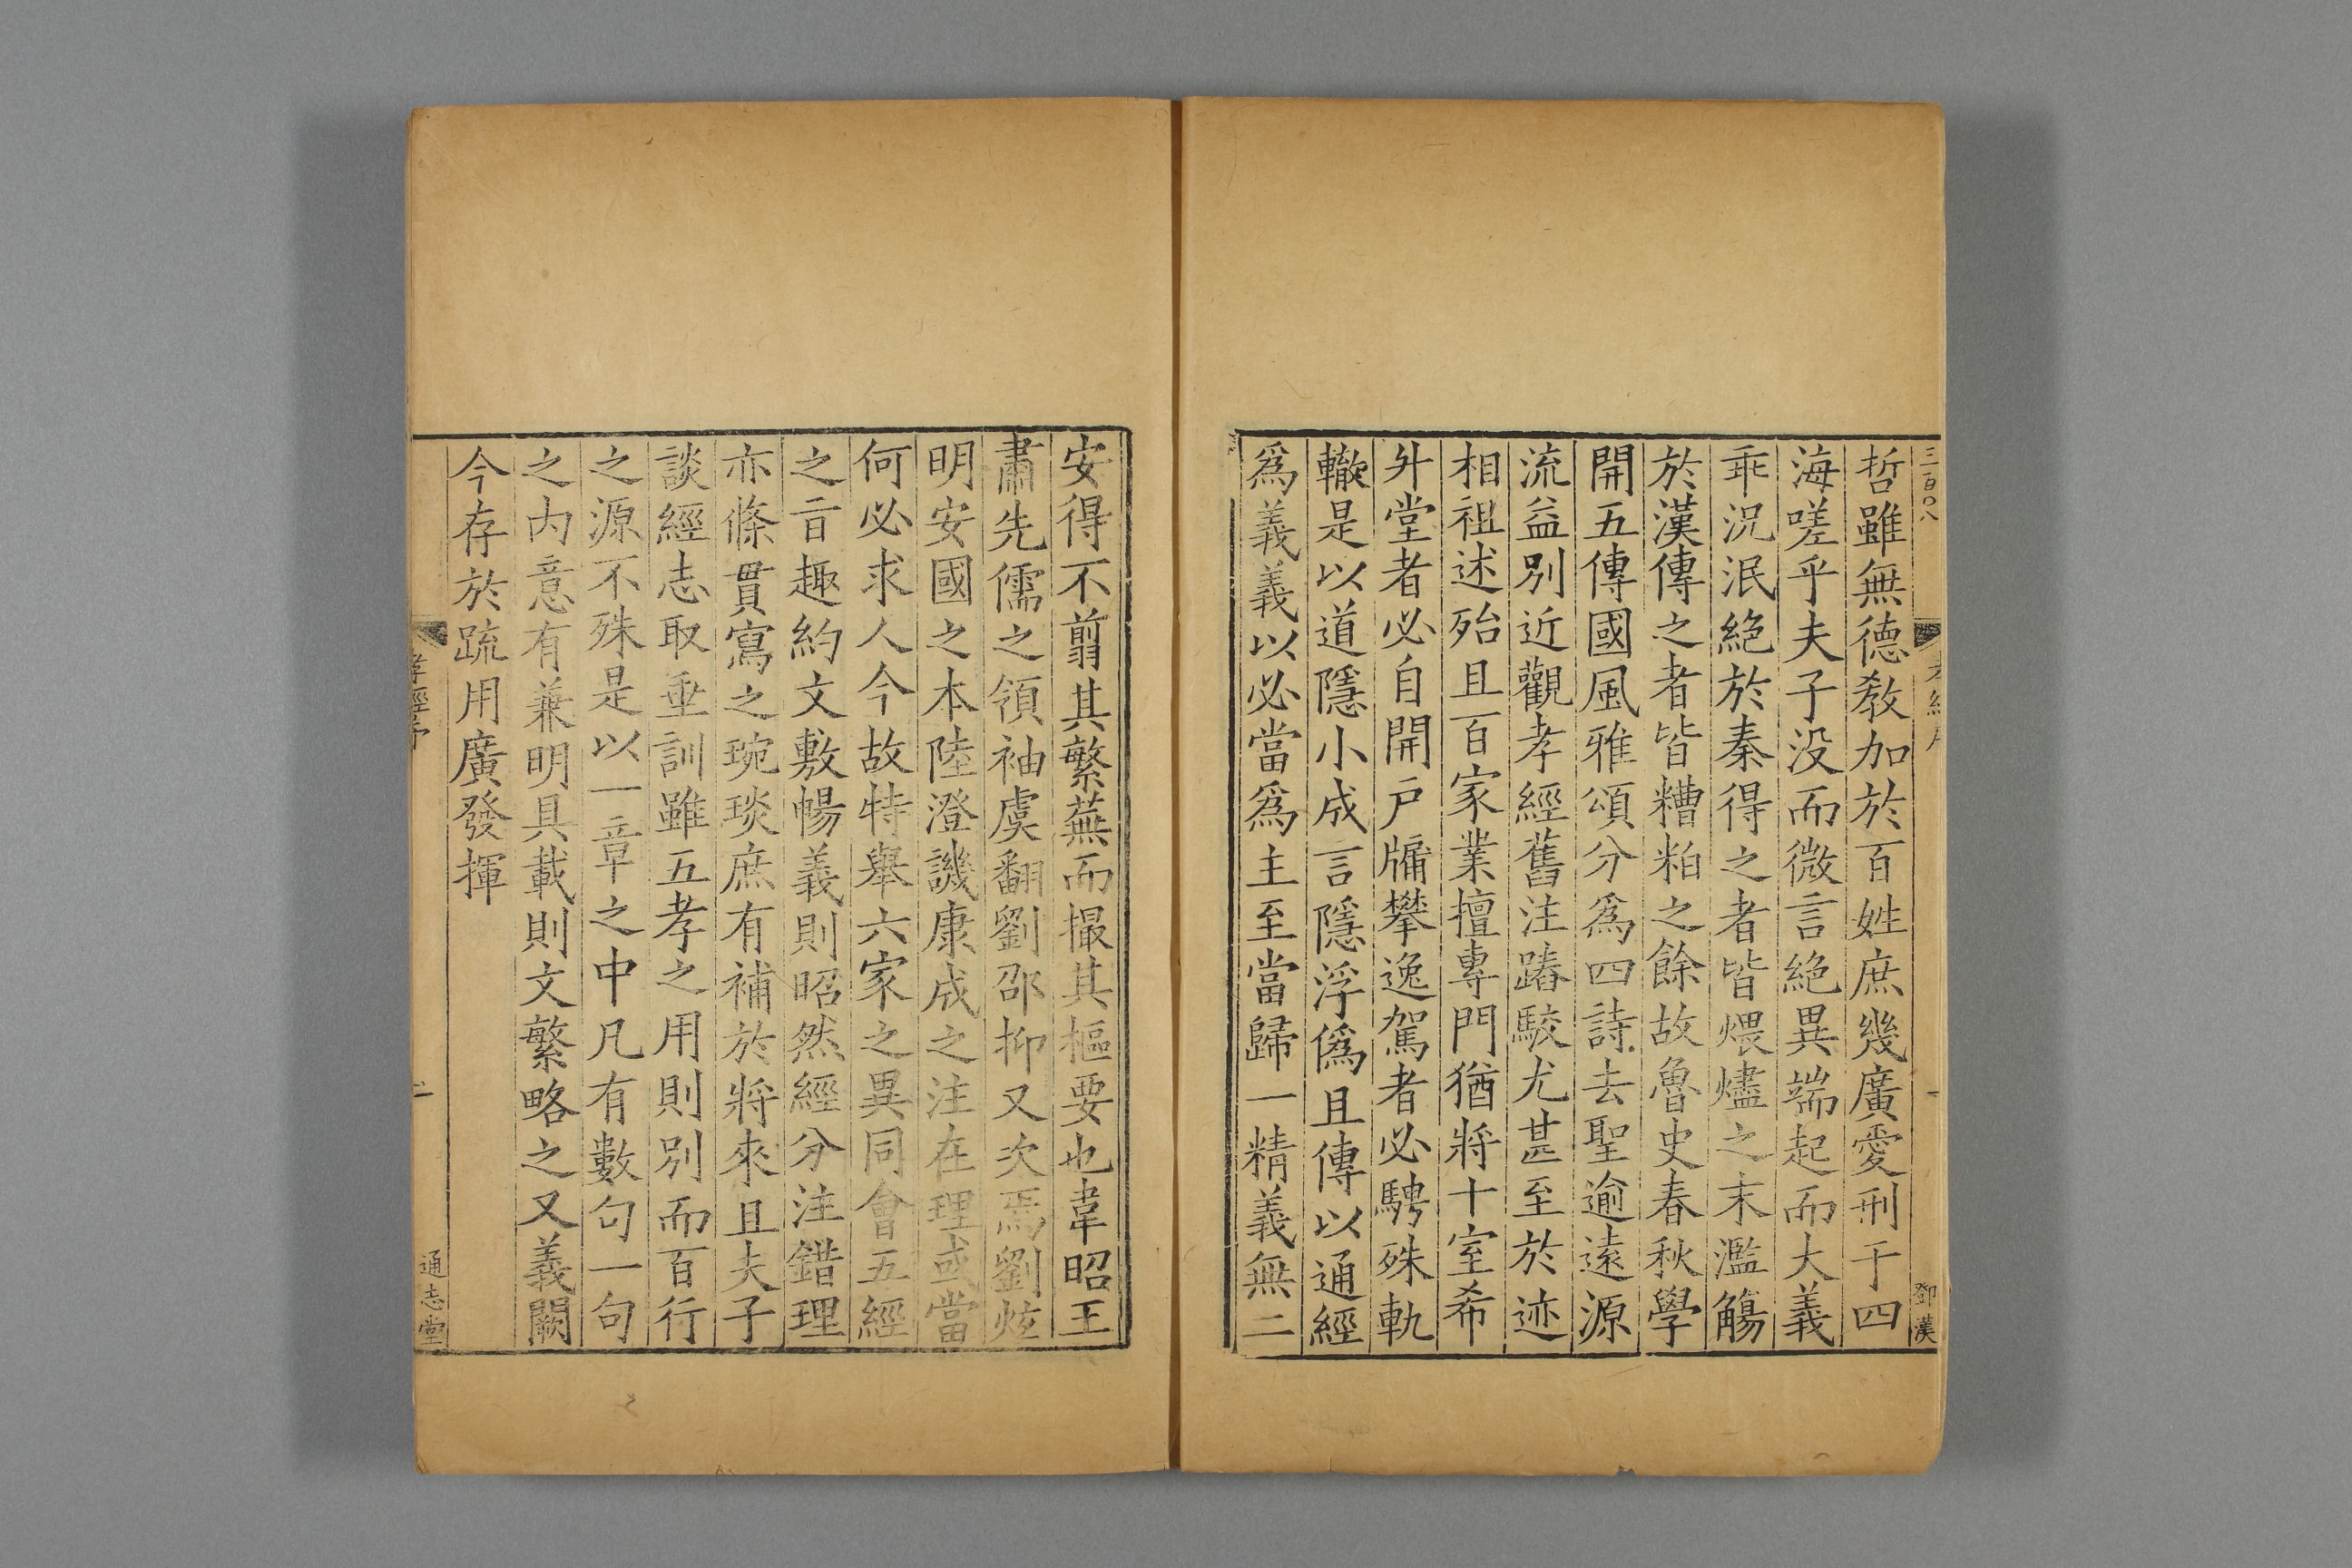 三百〇八
孝經序
一
鄧漢
哲雖無德教加於百姓庶幾廣愛刑于四
海嗟乎夫子没而微言絶異端起而大義
乖況泯絶於秦得之者皆煨燼之末濫觴
於漢傳之者皆糟粕之餘故魯史春秋學
開五傳國風雅頌分爲四詩去聖逾遠源
流益别近觀孝經舊注踳駮尤甚至於迹
相祖述殆且百家業擅專門猶將十室希
升堂者必自開戸牖攀逸駕者必騁殊軌
轍是以道隱小成言隱浮僞且傳以通經
爲義義以必當爲主至當歸一精義無二
安得不翦其繁蕪而撮其樞要也韋昭王
肅先儒之領袖虞翻劉邵抑又次焉劉炫
明安國之本陸澄譏康成之注在理或當
何必求人今故特舉六家之異同會五經
之㫖趣約文敷暢義則昭然經分注錯理
亦條貫寫之琬琰庶有補於將來且夫子
談經志取垂訓雖五孝之用則别而百行
之源不殊是以一章之中凡有數句一句
之内意有兼明具載則文繁略之又義闕
今存於疏用廣發揮
孝經序
二
通志堂